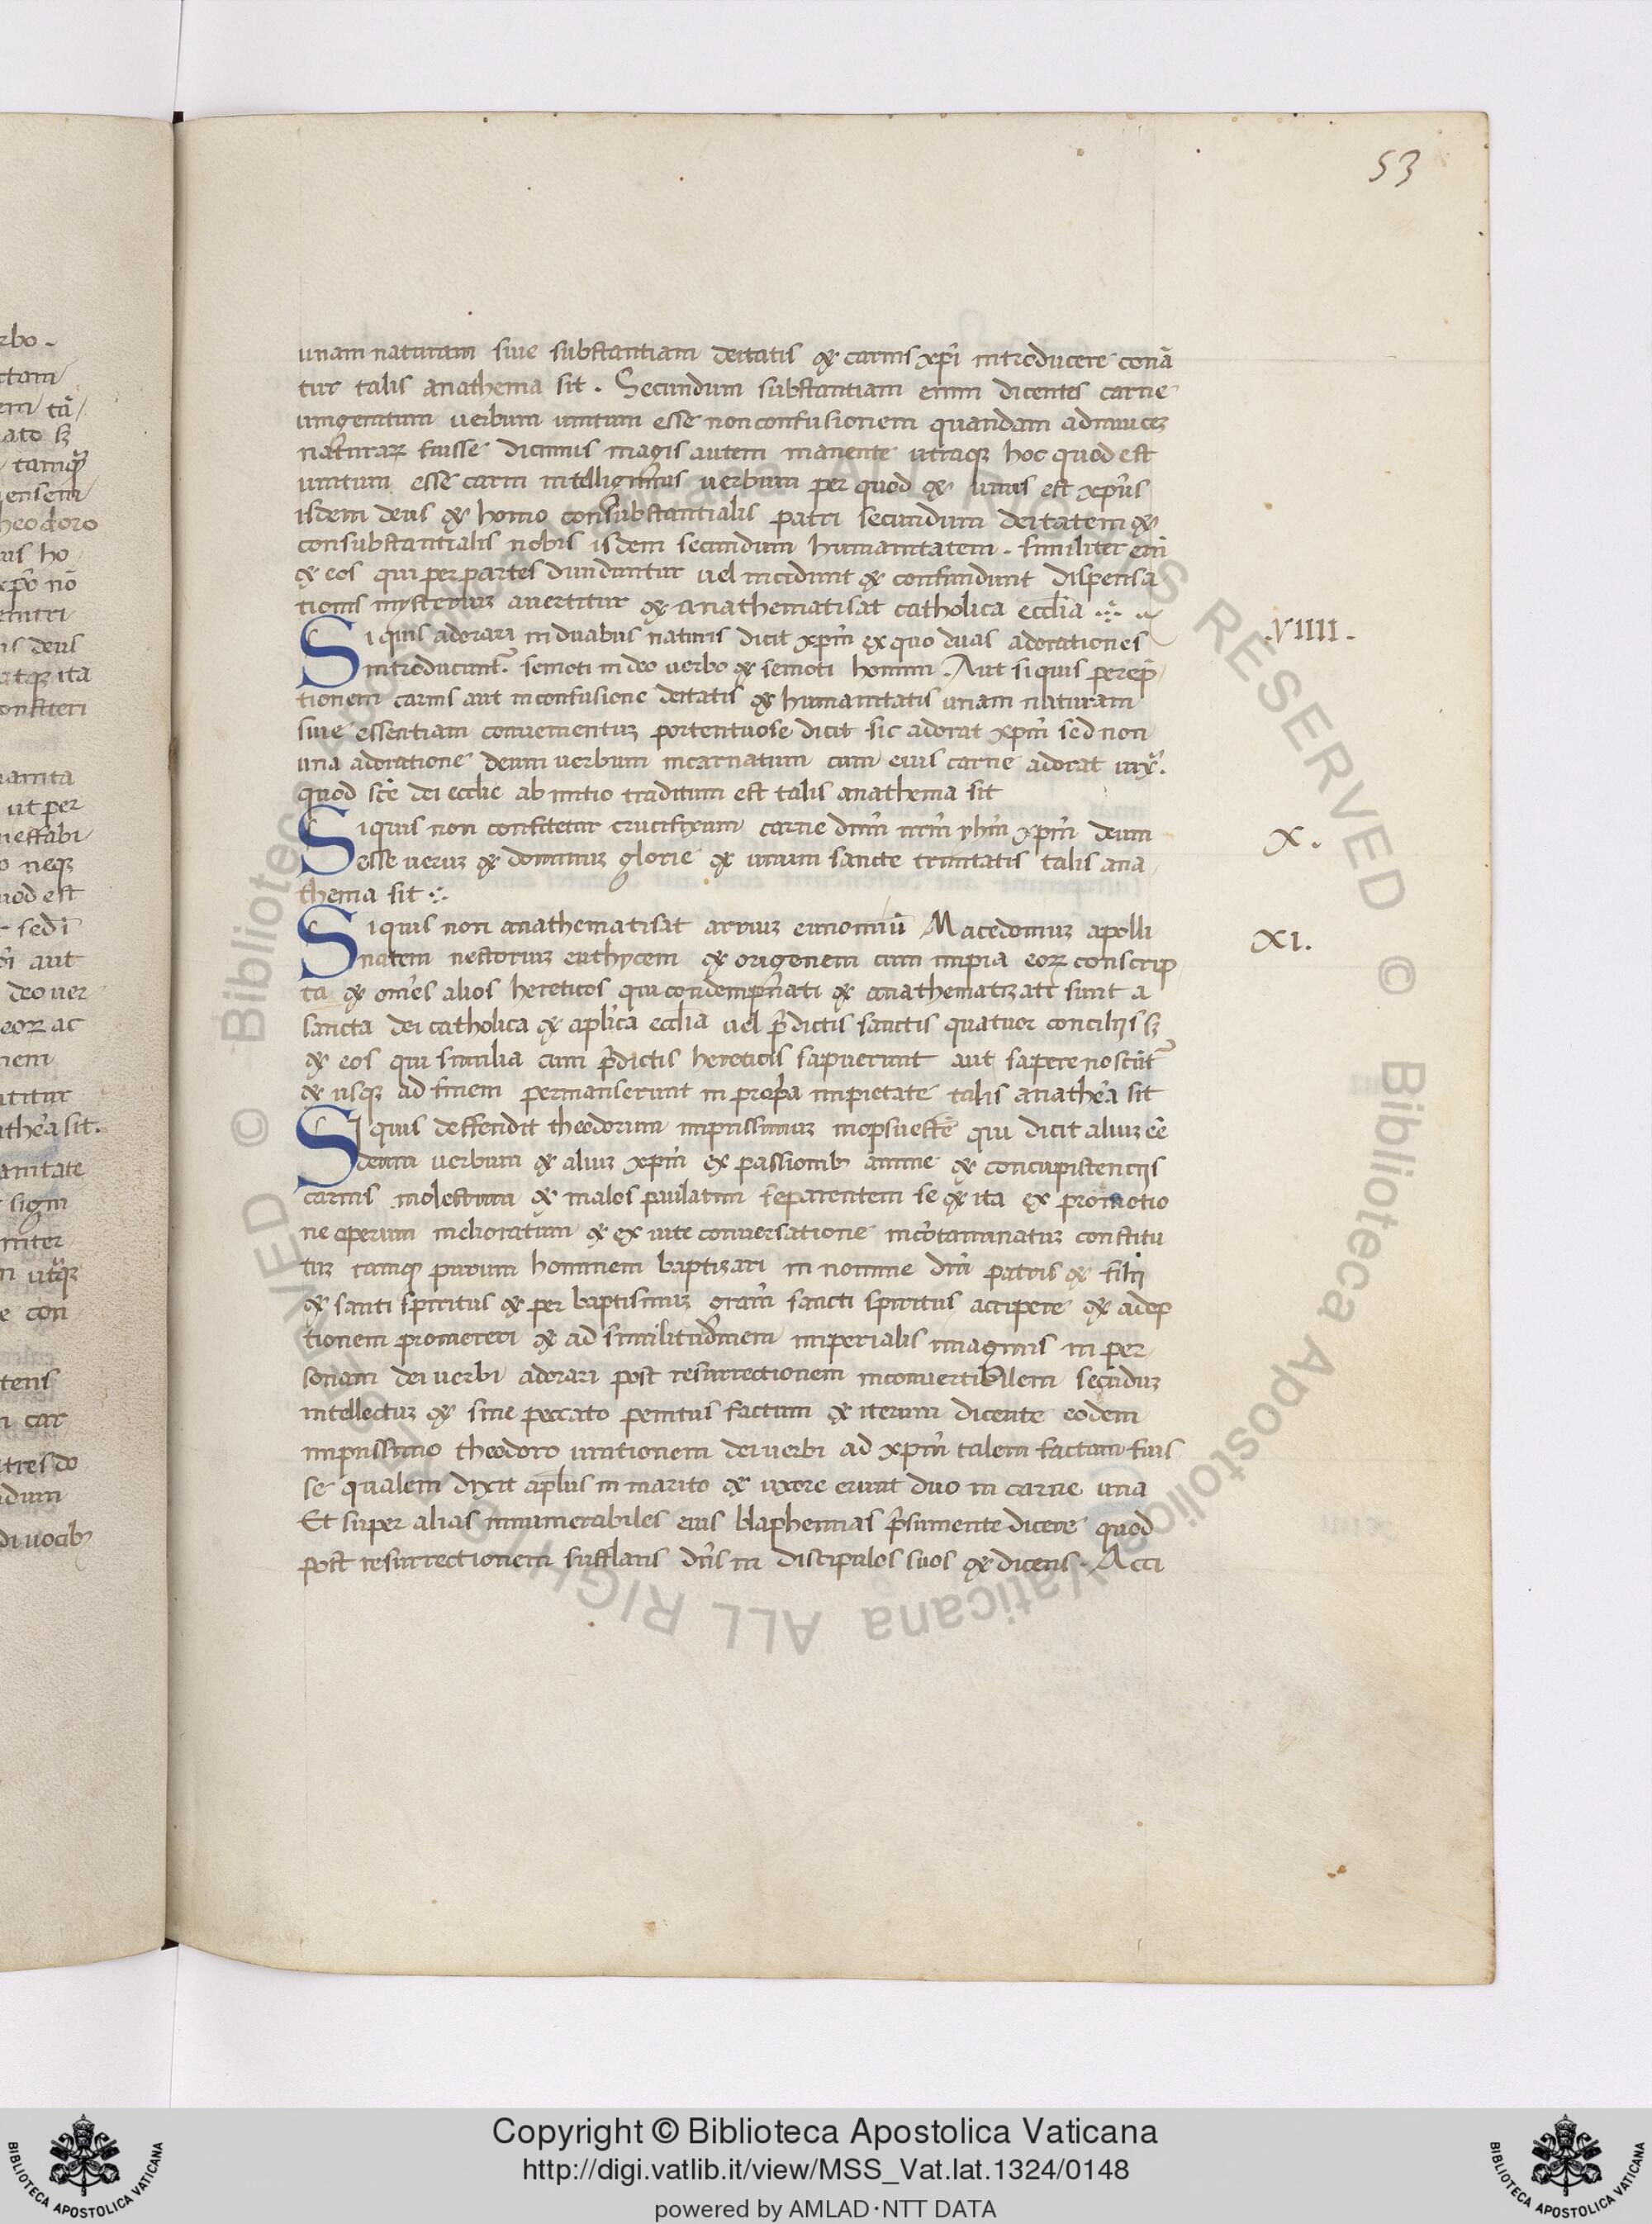 53
unam naturam siue substantiam deitatis & carnis xp̄i introducere conā
tur talis anathema sit . Secundum substantiam enim dicentes carne
unigenitum uerbum unitum esse non confusionem quandam adinuicez
naturarꝝ fuisse dicimus magis autem manente utraqꝫ hoc quod est
unitum esse carni intelligimus uerbum per quod & unus est xp̄us
isdem deus & homo consubstantialis patri secundum deitatem &
consubstantialis nobis isdem secundum humanitatem . similiter eni᷈
& eos qui per partes diuiduntur uel incidunt & confundunt dispensa
tionis mysteriuꝫ auertitur & anathematisat catholica eccl̄ia
Si quis adorari in duabus naturis dicit xp̄m ex quo duas adorationes
.VIIII.
introducunt᷒ semoti in deo uerbo & semoti homini . Aut si quis perep̄
tionem carnis aut in confusione deitatis & humanitatis unam naturam
siue essentiam conuenientuꝫ portentuose dicit sic adorat xp̄m sed non
una adoratione deum uerbum incarnatum cum eius carne adorat iux᷒.
quod scē dei ecclie ab initio traditum est talis anathema sit
Si quis non confitetur crucifixum carne dn̄m nr̄m yhm̄ xp̄m deum
X.
esse ueruꝫ & dominuꝫ glorie & unum sancte trinitatis talis ana
thema sit
Si quis non anathematisat arriuꝫ eunomiū Macedoniuꝫ apolli
XI.
narem nestoriuꝫ euthycem & origenem cum impia eoꝝ conscrip
ta & om̄es alios hereticos qui condempnati & anathematizati sunt a
sancta dei catholica & aplica eccl̄ia uel p̄dictis sanctis quatuor concilijs sꝫ
& eos qui similia cum p̄dictis hereticis sapuerunt aut sapere noscūt᷒
& usqꝫ ad finem permanserunt in propa impietate talis anathēa sit
SI quis deffendit theodorum impiissimuꝫ mopsuestē qui dicit aliuꝫ eē
deum uerbum & aliuꝫ xp̄m ex passionibꝫ anime & concupiscencijs
carnis molestum & malos paulatim separentem se & ita ex promotio
ne operum melioratum & ex uite conuersatione incōtaminatuꝫ constitu
tuꝫ tamqꝫ purum hominem baptizari in nomine dn̄i patris & filij
& santi spiritus & per baptismuꝫ gram̄ sancti spiritus accipere & adop
tionem promereri & ad similitudinem imperialis imaginis in per
sonam dei uerbi adorari post resurrectionem inconuertibilem secūduꝫ
intellectuꝫ & sine peccato penitus factum & iterum dicente eodem
impiissimo theodoro unitionem dei uerbi ad xp̄m talem factam fuis
se qualem dixit aplus in marito & uxore erunt duo in carne una
Et super alias innumerabiles eius blaphemias p̄sumente dicere quod
post resurrectionem sufflans dn̄s in discipulos suos & dicens . Acci
Copyright © Biblioteca Apostolica Vaticana
http://digi.vatlib.it/view/MSS_Vat.lat.1324/0148
powered by AMLAD·NTT DATA